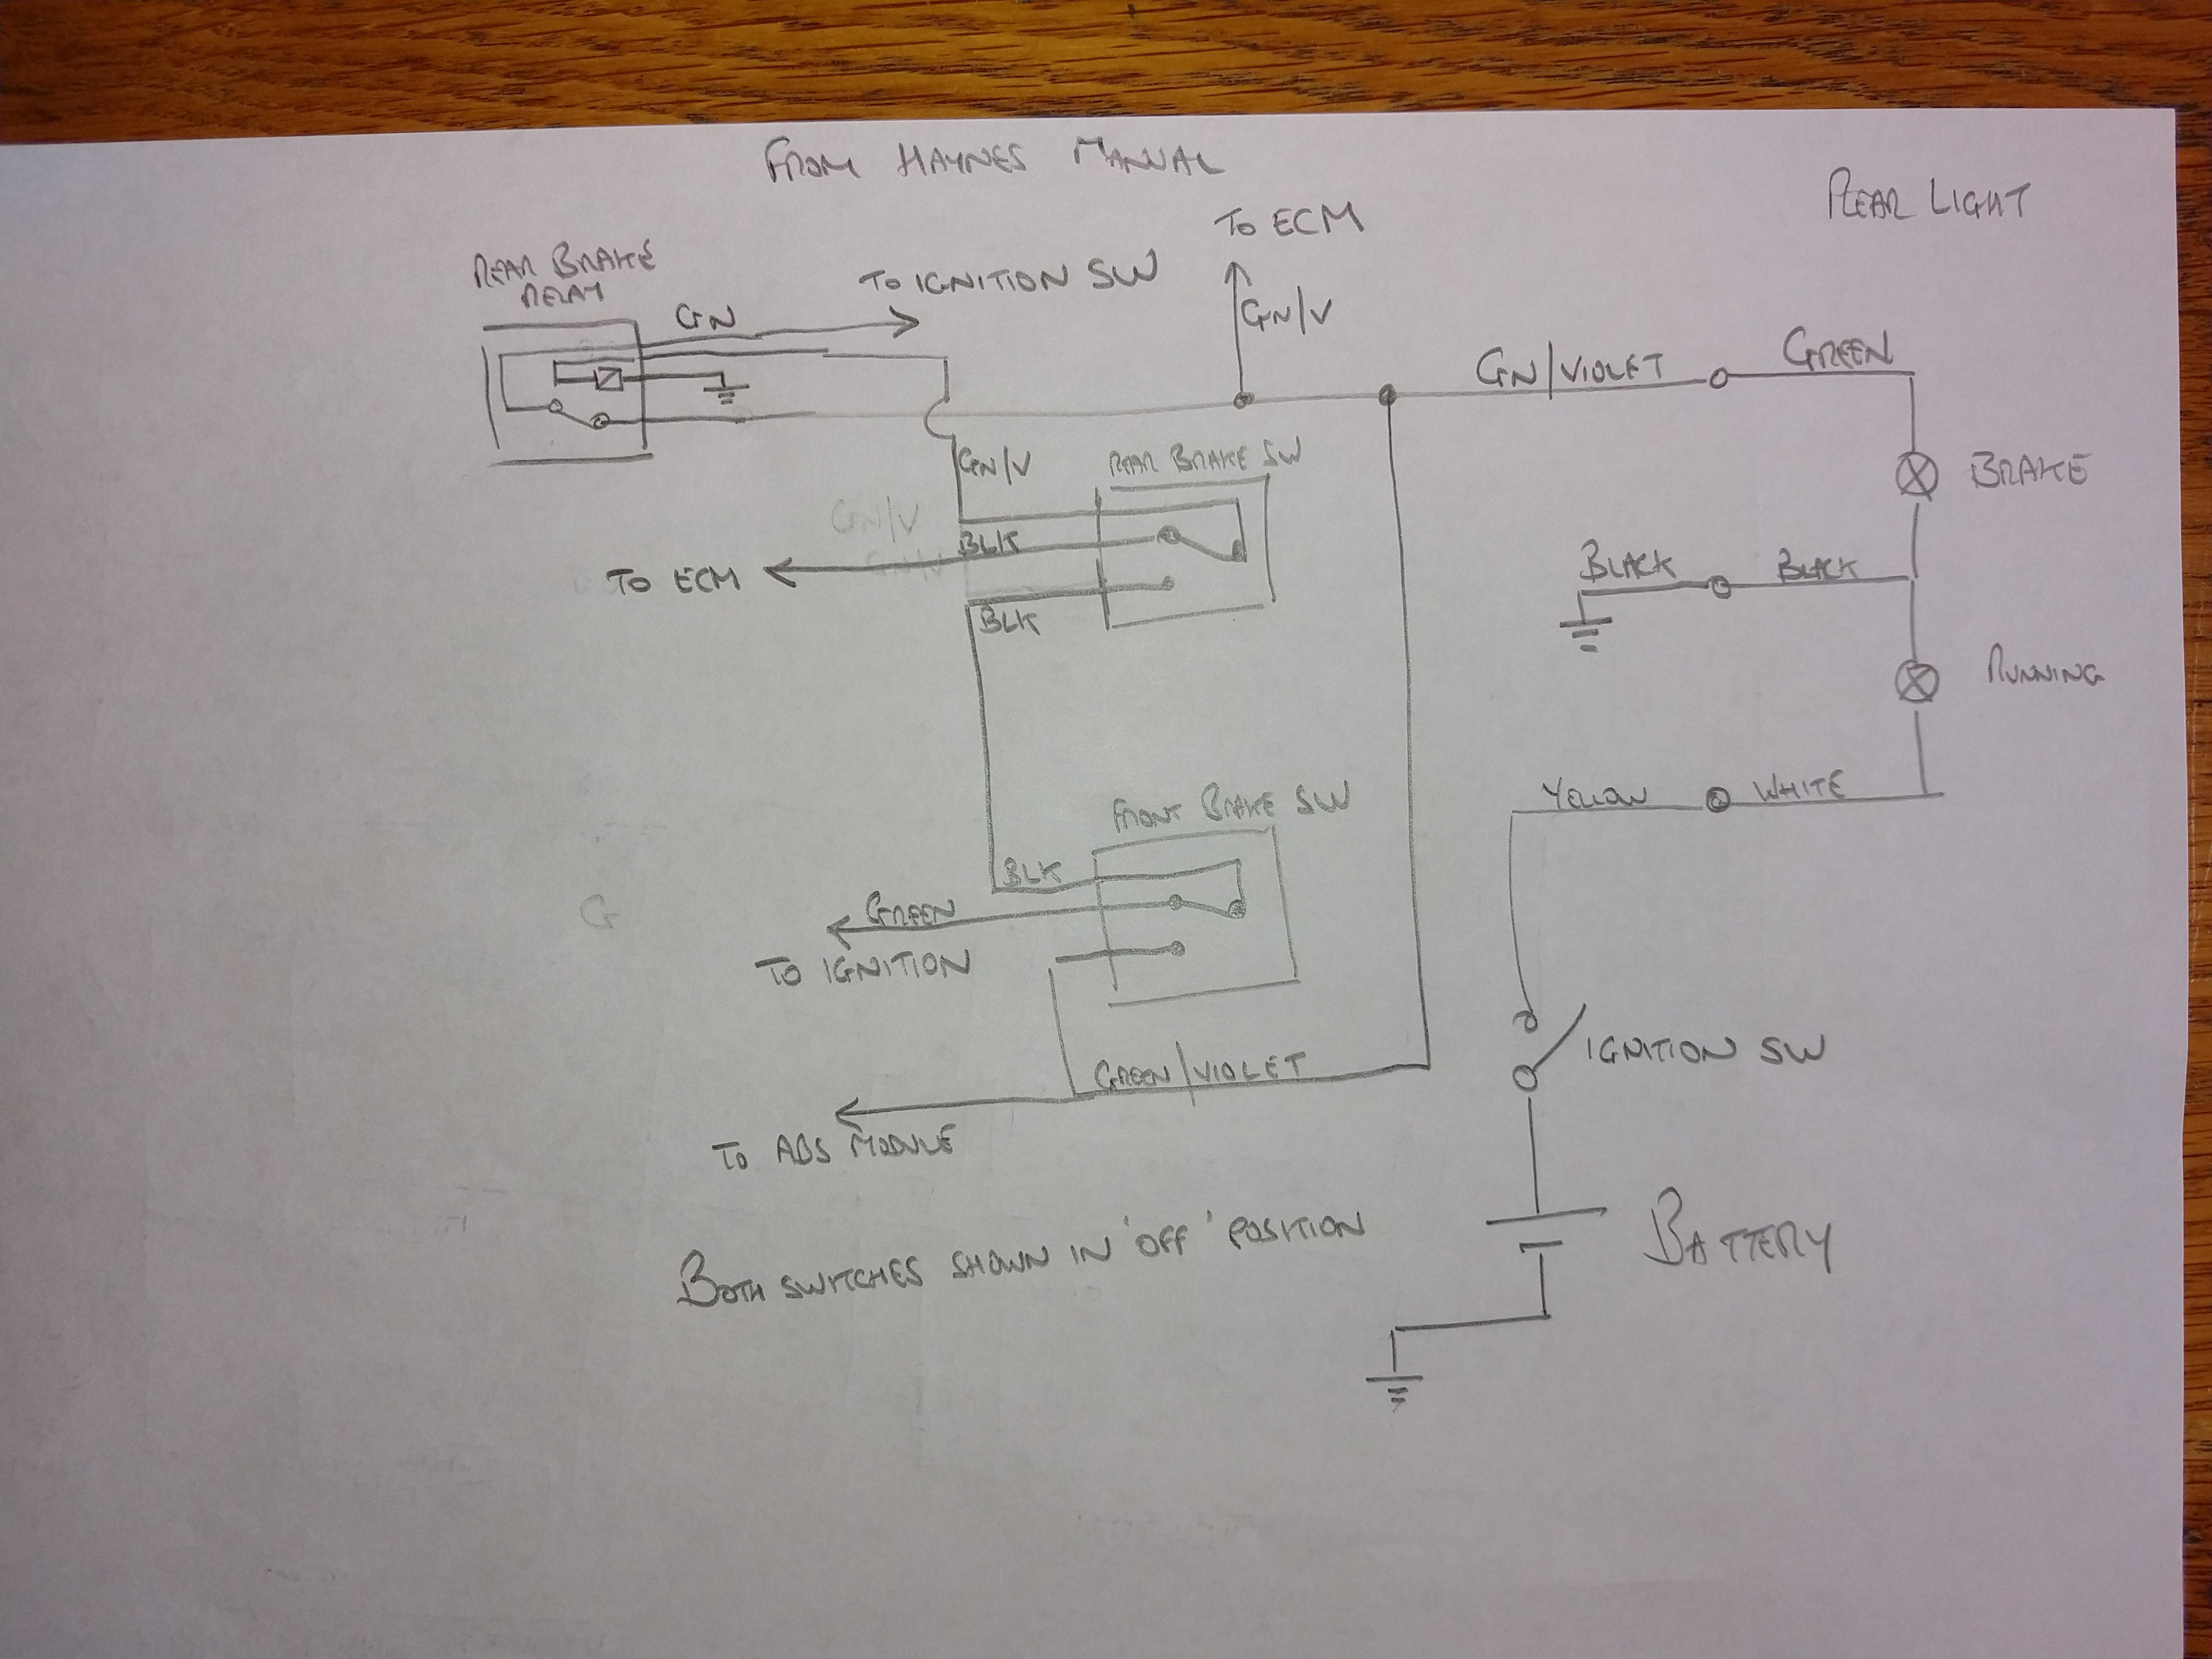 FROM HAYNES MANUAL
REAR LIGHT
TO ECM
REAR BRAKE
RELAY
TO IGNITION SW
GN
GN/V
GN/VIOLET
GREEN
GN/V
REAR BRAKE SW
BRAKE
GN/V
BLK
TO ECM
BLACK
BLACK
BLK
RUNNING
YELLOW
WHITE
FRONT BRAKE SW
BLK
GREEN
G
TO IGNITION
IGNITION SW
GREEN/VIOLET
TO ABS MODULE
BOTH SWITCHES SHOWN IN 'OFF' POSITION
BATTERY